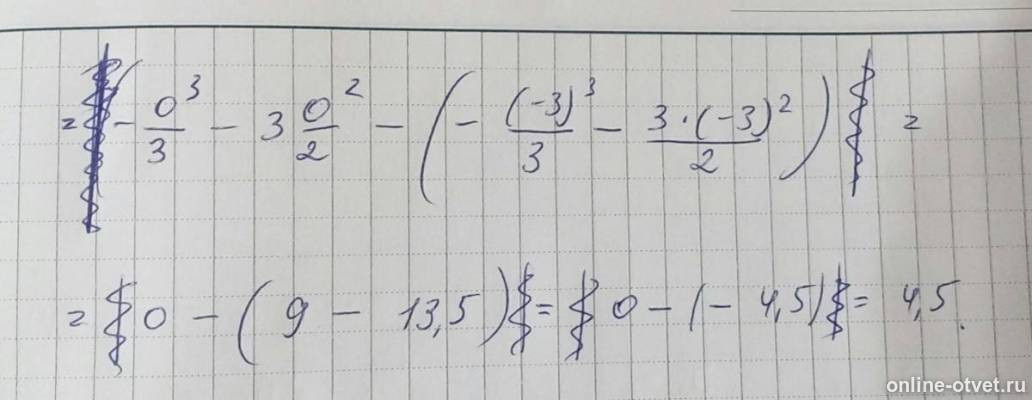 = - 0³/3 - 3 0²/2 - (- (-3)³/3 - 3·(-3)²/2) =
= 0 - (9 - 13,5) = 0 - (- 4,5) = 4,5.
online-otvet.ru